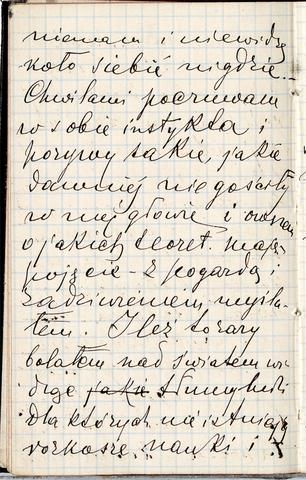 niemam i niewidzę
koło siebie nigdzie.
Chwilami poczuwam
w sobie instykta i
porywy takie, jakie
dawniej niegościły
w mej głowie i
o jakich teoret. mają
pojęcie – z pogardą i
zadziwieniem myśla-
łem. Ileż to razy
bolałem nad światem wi-
dząc jaki
dla których nie istnieją
rozkosze, nauki i